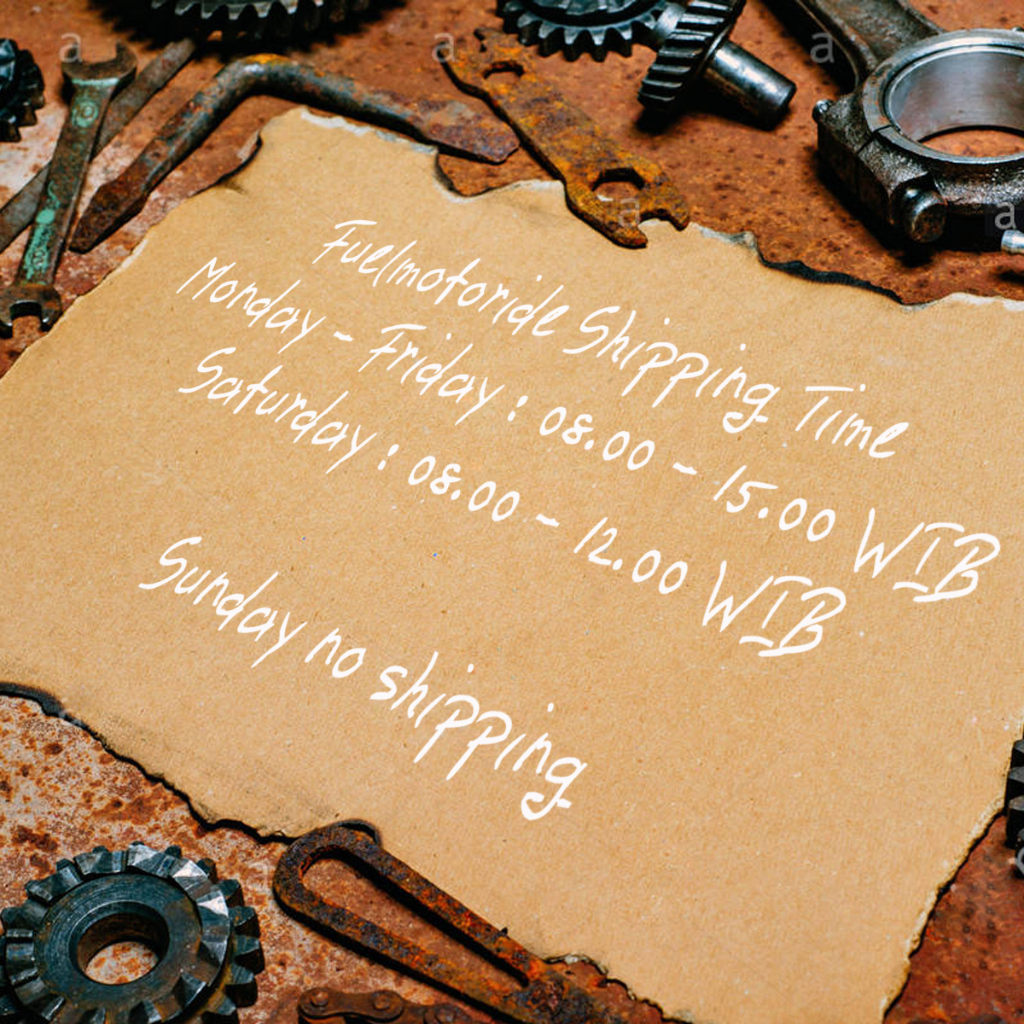 Fuelmotoride Shipping Time
Monday - Friday : 08.00 - 15.00 WIB
Saturday : 08.00 - 12.00 WIB
Sunday no shipping